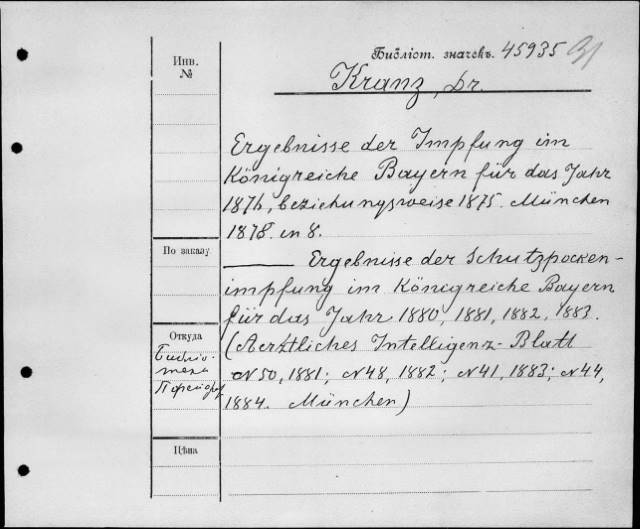 Библіот. значекъ. 45935
Инв.
№
Kranz, Dr.
Ergebnisse der Impfung im
Königreiche Bayern für das Jahr
1876, beziehungsweise 1875. München
1878. in 8.
По заказу
——— Ergebnisse der Schutzpocken-
impfung im Königreiche Bayern
für das Jahr 1880, 1881, 1882, 1883.
Откуда
(Aerztliches Intelligenz-Blatt
Библіо-
тека
№ 50, 1881; № 48, 1882; № 41, 1883; № 44,
1884. München)
Цѣна